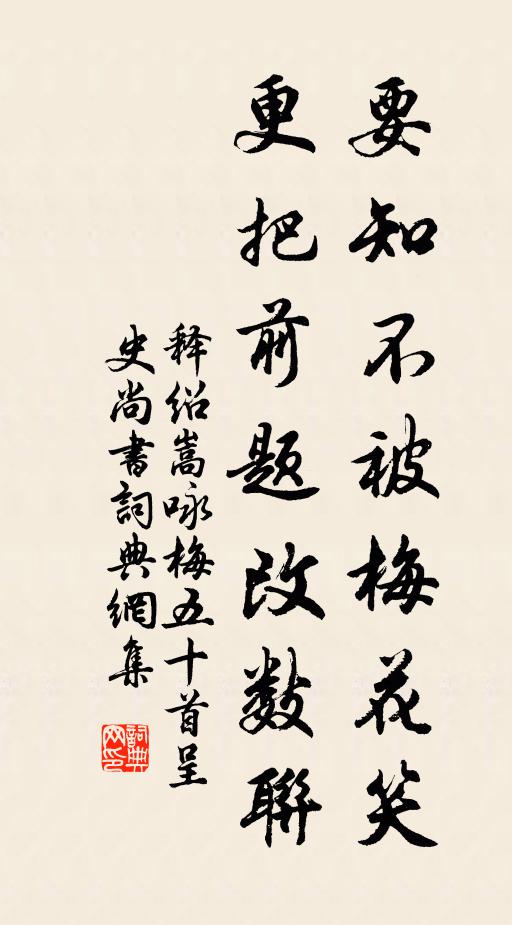 要知不被梅花笑
更把前题改数联
释绍嵩咏梅五十首呈
史尚書詞典網集
詞典网印